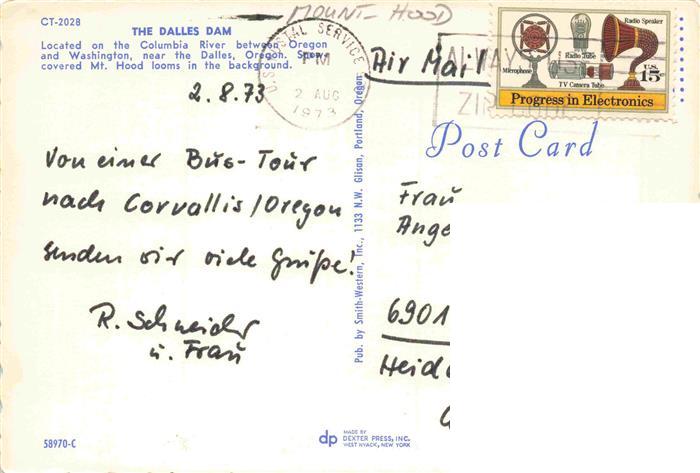 CT-2028
THE DALLES DAM
Located on the Columbia River between Oregon
and Washington, near the Dalles, Oregon. Snow
covered Mt. Hood looms in the background.
MOUNT-HOOD
U.S. POSTAL SERVICE
PM
2 AUG
1973
Air Mail
ALWAYS USE
ZIP CODE
Radio Speaker
Radio Tube
Microphone
TV Camera Tube
U.S.
15c
Progress in Electronics
Post Card
2.8.73
Von einer Bus-Tour
nach Corvallis/Oregon
senden wir viele Grüße!
R. Schneider
u. Frau
Pub. by Smith-Western, Inc., 1133 N.W. Glisan, Portland, Oregon
Frau
Ange
6901
Heide
58970-C
dp
MADE BY
DEXTER PRESS, INC.
WEST NYACK, NEW YORK